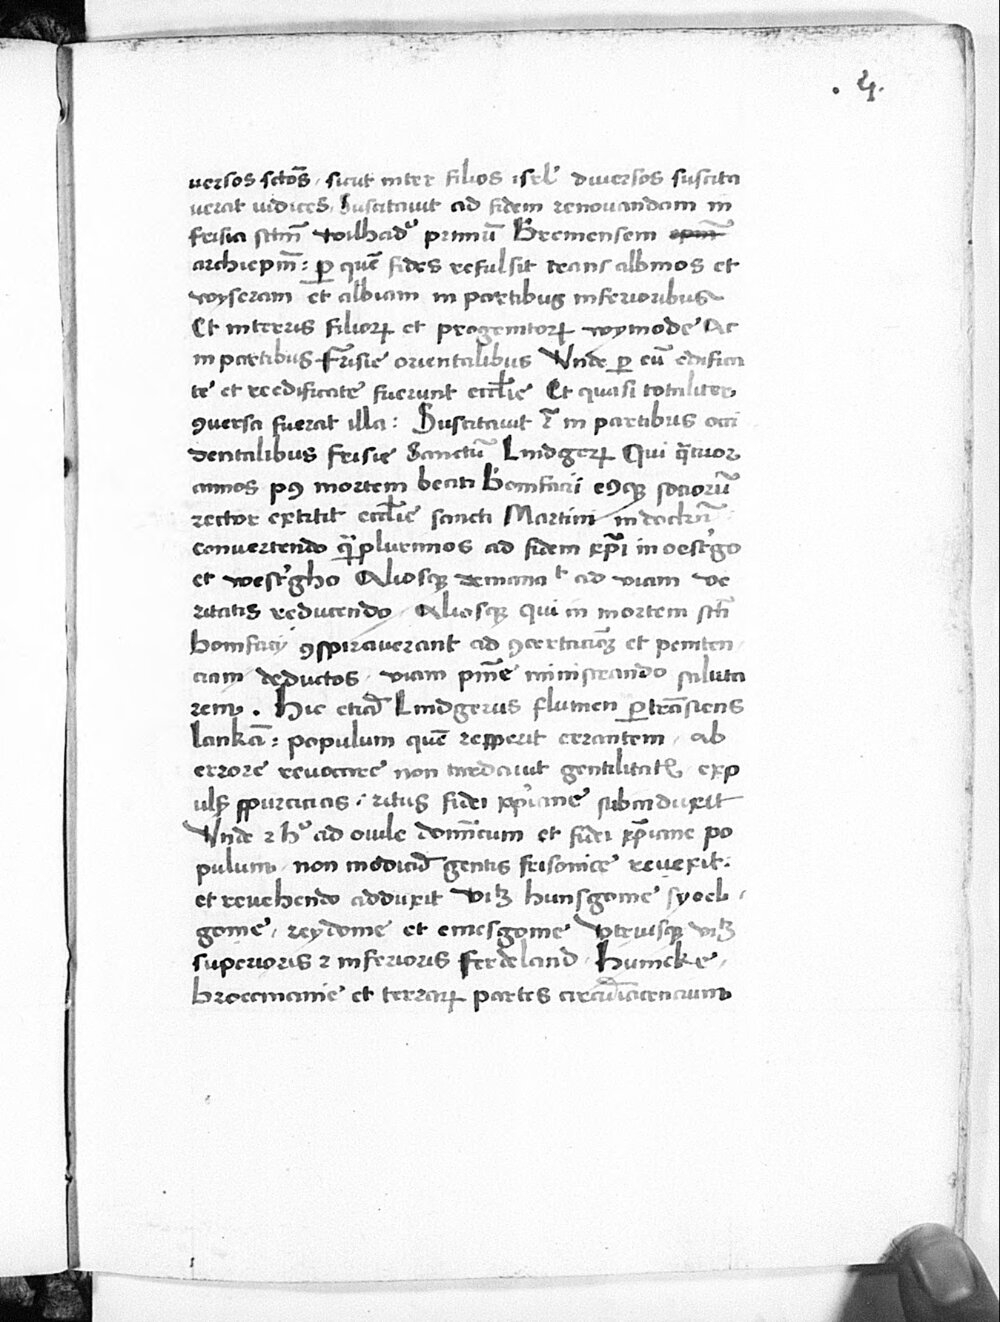 . 4.
versos sctōs, sicut inter filios isrl' diversos suscita
verat iudices, Suscitavit ad fidem renovandam in
frisia sctm̄ willhadū primū Bremensem
archiepm̄: ꝑ quē fides refulsit trans albinos et
wyseram et albiam in partibus inferioribus
Et interris filioꝝ et progenitoꝝ wymode Ac
in partibus Frisie orientalibus Unde ꝑ eū edifica
te et reedificate fuerunt ecclīe Et quasi totaliter
ꝯversa fuerat illa: Suscitavit in partibus occi
dentalibus frisie Sanctū Lindgeꝝ Qui q̄tuor
annos pꝰ mortem beati Bonifacii eiꝰqꝫ socioꝝ
rector extitit ecclīe sancti Martini
convertendo qꝫplurimos ad fidem xp̄i in oestergo
et westergho Aliosqꝫ ad viam ve
ritatis reducendo, Aliosqꝫ qui in mortem scti
bonifacij ꝯspiraverant ad et peniten
ciam deductos, viam pnīe ministrando saluta
rem. Hic etiā Lindgerus flumen ꝑtransiens
lankā: populum quē repperit errantem, ab
errore revocare non tardavit gentilitatꝭ exp
ulsꝭ spurciciis: ritus fidei xp̄iane subinduxit
Unde ⁊ hͦ ad ovile domīcum et fidei xp̄iane po
pulum, non modicū gentis frisonice revexit:
et revehendo adduxit viꝫ hunsgonie syvel,
gonie, reydonie et emesgonie utriusqꝫ viꝫ
superioris ⁊ inferioris Federland, Humcke,
broecmanie et terraꝝ partes circūiacencium